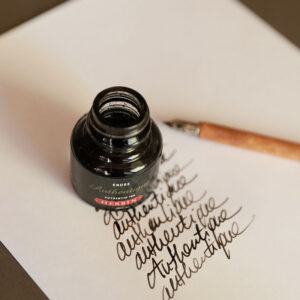 ENCRE
Authentique
AUTHENTIC INK
HERBIN
authentique
authentique
authentique
authentique
Authentique
authentique